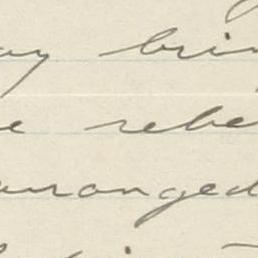 ay brin
e rebe
arranged